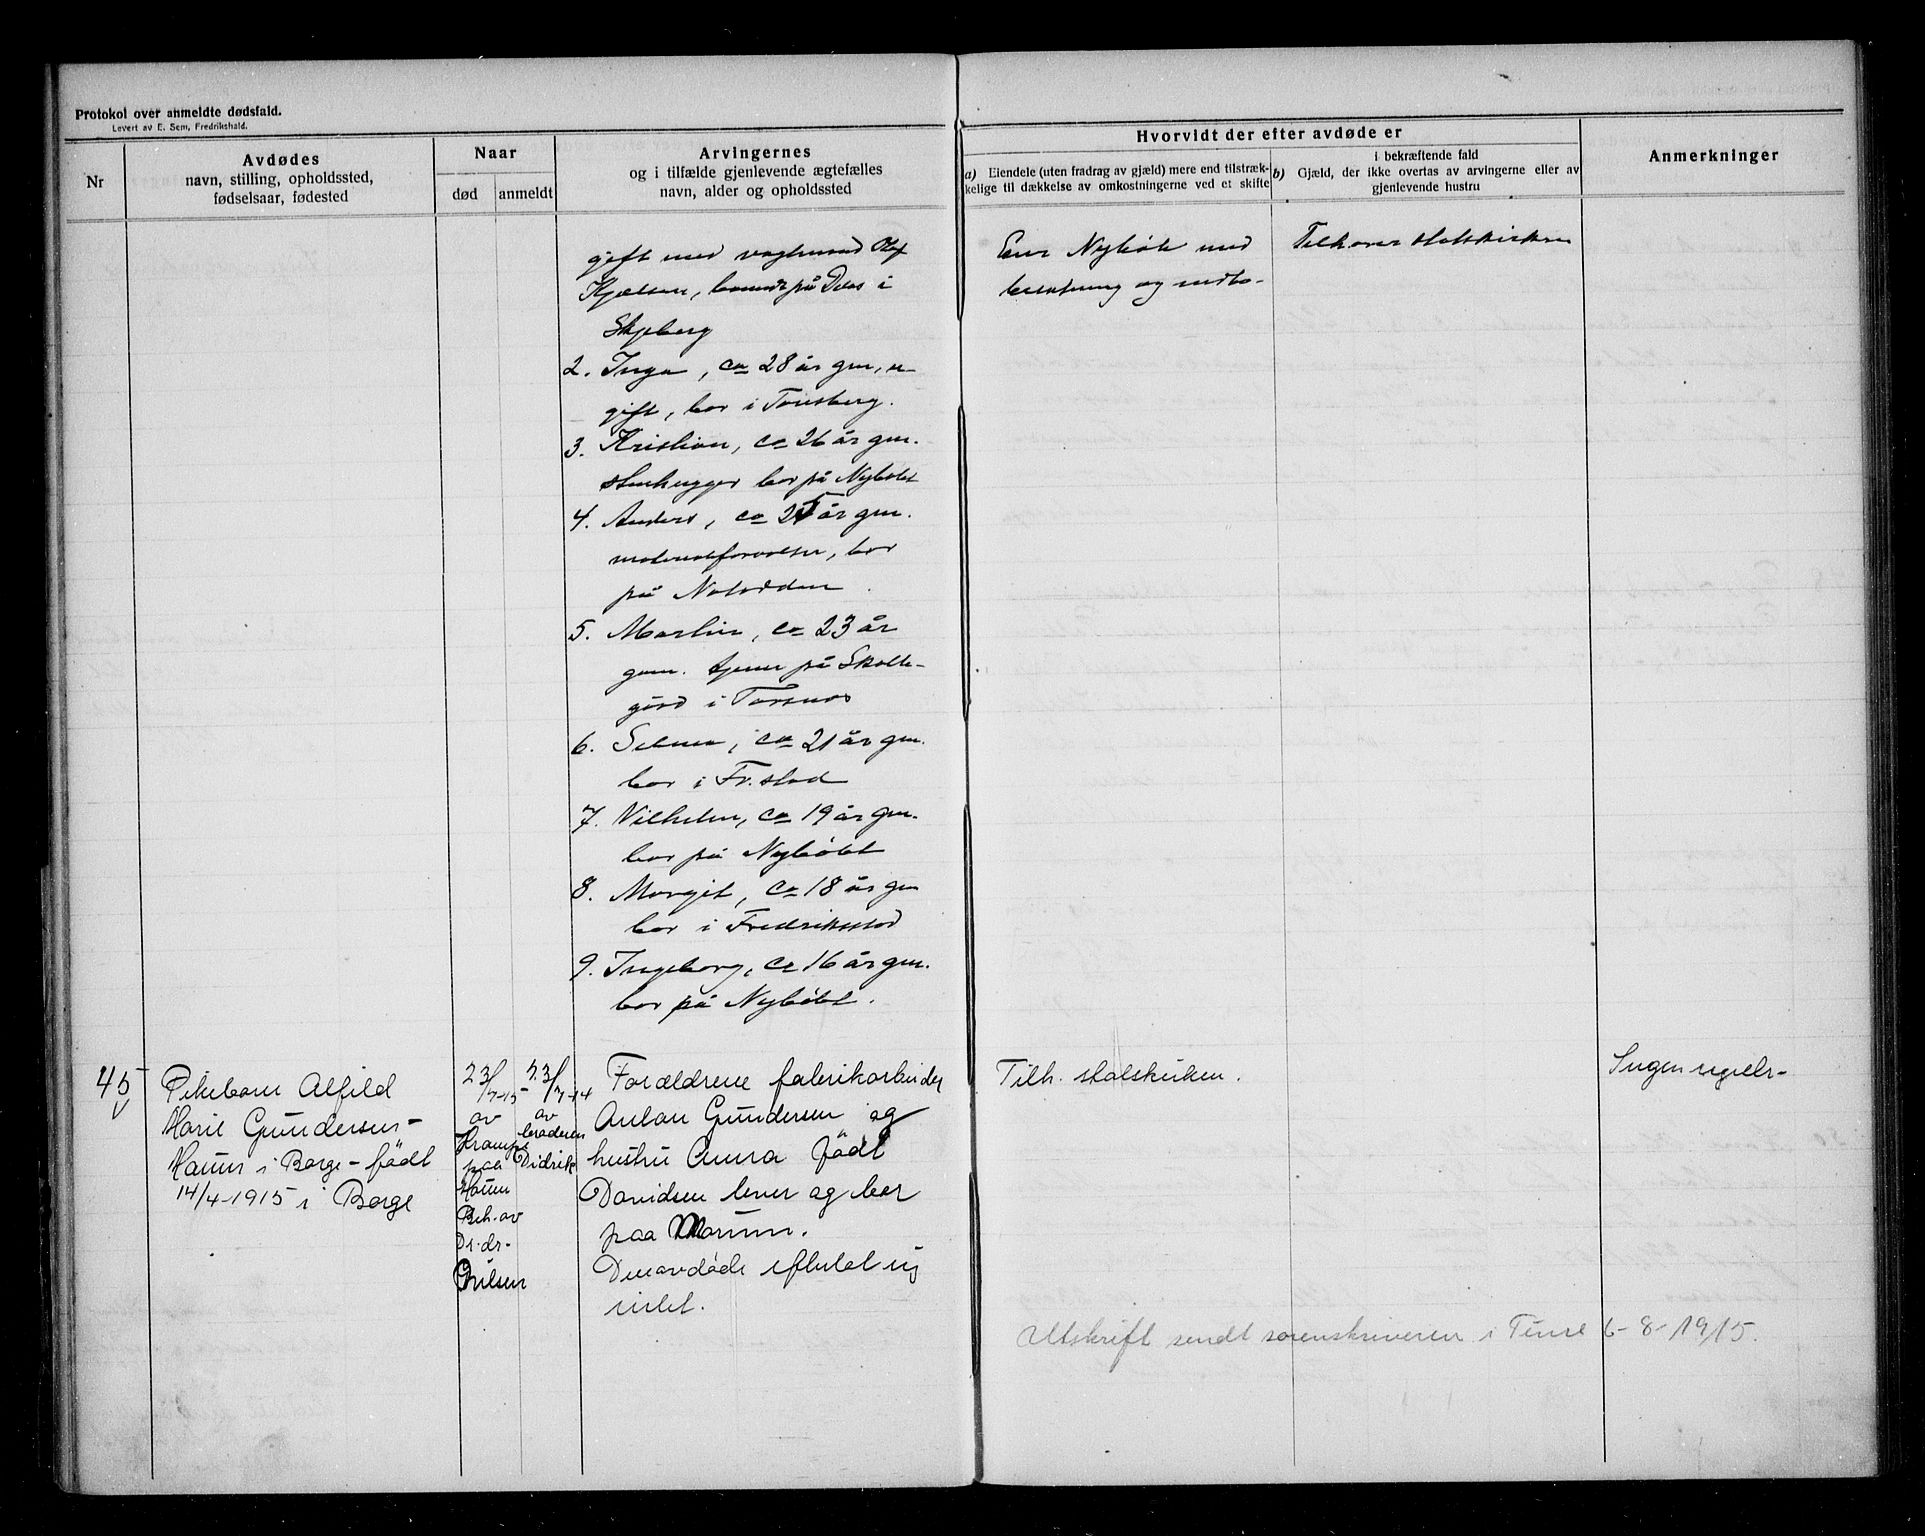 Protokol over anmeldte dødsfald.
Levert av E. Sem, Fredrikshald.
Nr
Avdødes
navn, stilling, opholdssted,
fødselsaar, fødested
Naar
død
anmeldt
Arvingernes
og i tilfælde gjenlevende ægtefælles
navn, alder og opholdssted
Hvorvidt der efter avdøde er
a) Eiendele (uten fradrag av gjæld) mere end tilstræk-
kelige til dækkelse av omkostningerne ved et skifte
i bekræftende fald
b) Gjæld, der ikke overtas av arvingerne eller av
gjenlevende hustru
Anmerkninger
gift med Olaf
Kjølsen, boende på i
Skjeberg
2. Inga, ca 28 år gm, u-
gift, bor i Tønsberg.
3. Kristian, ca 26 år gm.
stenhugger bor på Nybølet
4. Anders, ca 25 år gm.
materialforvalter, bor
på Notodden
5. Martin, ca 23 år
gam. tjener på Skolle-
gård i Torsnes
6. Selma, ca 21 år gm.
bor i Fr.stad
7. Vilhelm, ca 19 år gm.
bor på Nybølet
8. Margit, ca 18 år gm
bor i Fredriksstad
9. Ingeborg, ca 16 år gm.
bor på Nybølet.
Eier Nybøle med
besætning og indbo-
Tilhører statskirken
45
Pikebarn Alfild
Marie Gundersen -
Haum i Borge - født
14/4-1915 i Borge
23/7-15
av
Krampe
paa
Haum
Beh. av
Di.dr-
Nilsen
23/7-14
av
broderen
Didrik
Forældrene fabrikarbeider
Anton Gundersen og
hustru Anna født
Davidsen lever og bor
paa Haum.
Den avdøde efterlot sig
intet.
Tilh. statskirken.
Ingen
Utskrift sendt sorenskriveren i Tune 6-8-1915.